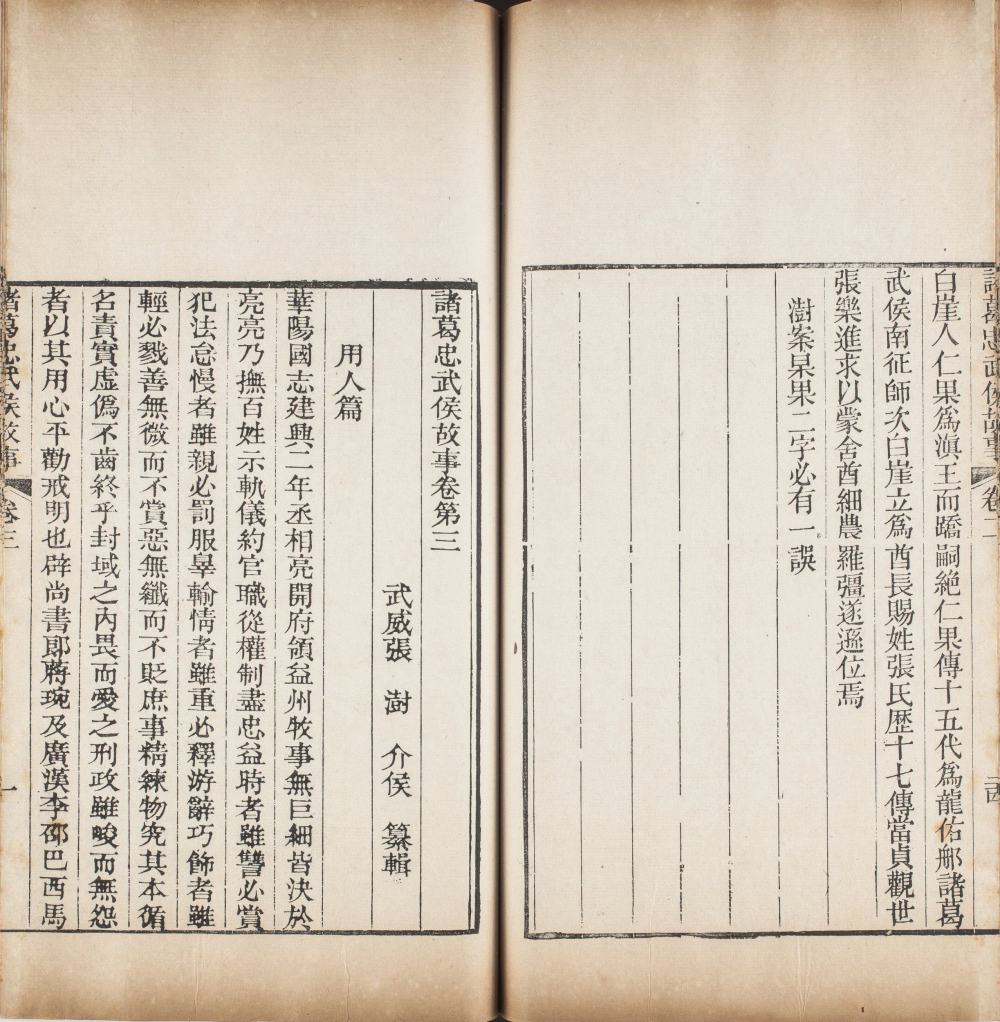 諸葛忠武侯故事 卷二
白崖人仁果爲滇王而蹻嗣絶仁果傳十五代爲龍佑那諸葛
武侯南征師次白崖立爲酋長賜姓張氏歴十七傳當貞觀世
張樂進求以蒙舍酋細農羅彊遂遜位焉
澍案杲果二字必有一誤
諸葛忠武侯故事卷第三
武威張 澍 介侯 纂輯
用人篇
華陽國志建興二年丞相亮開府領益州牧事無巨細皆決於
亮亮乃撫百姓示軌儀約官職從權制盡忠益時者雖讐必賞
犯法怠慢者雖親必罰服辠輸情者雖重必釋游辭巧飾者雖
輕必戮善無微而不賞惡無纖而不貶庶事精練物究其本循
名責實虛僞不齒終乎封域之內畏而愛之刑政雖峻而無怨
者以其用心平勸戒明也辟尚書郎蔣琬及廣漢李邵巴西馬
諸葛忠武侯故事 卷三 一